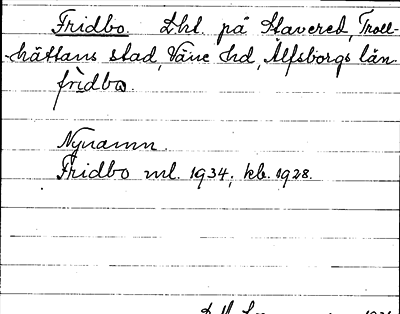 Fridbo. Lht. på Stavered, Troll-
-hättans stad, Väne hd, Älfsborgs län.
fridbo.
Nynamn.
Fridbo ml. 1934; kb. 1928.